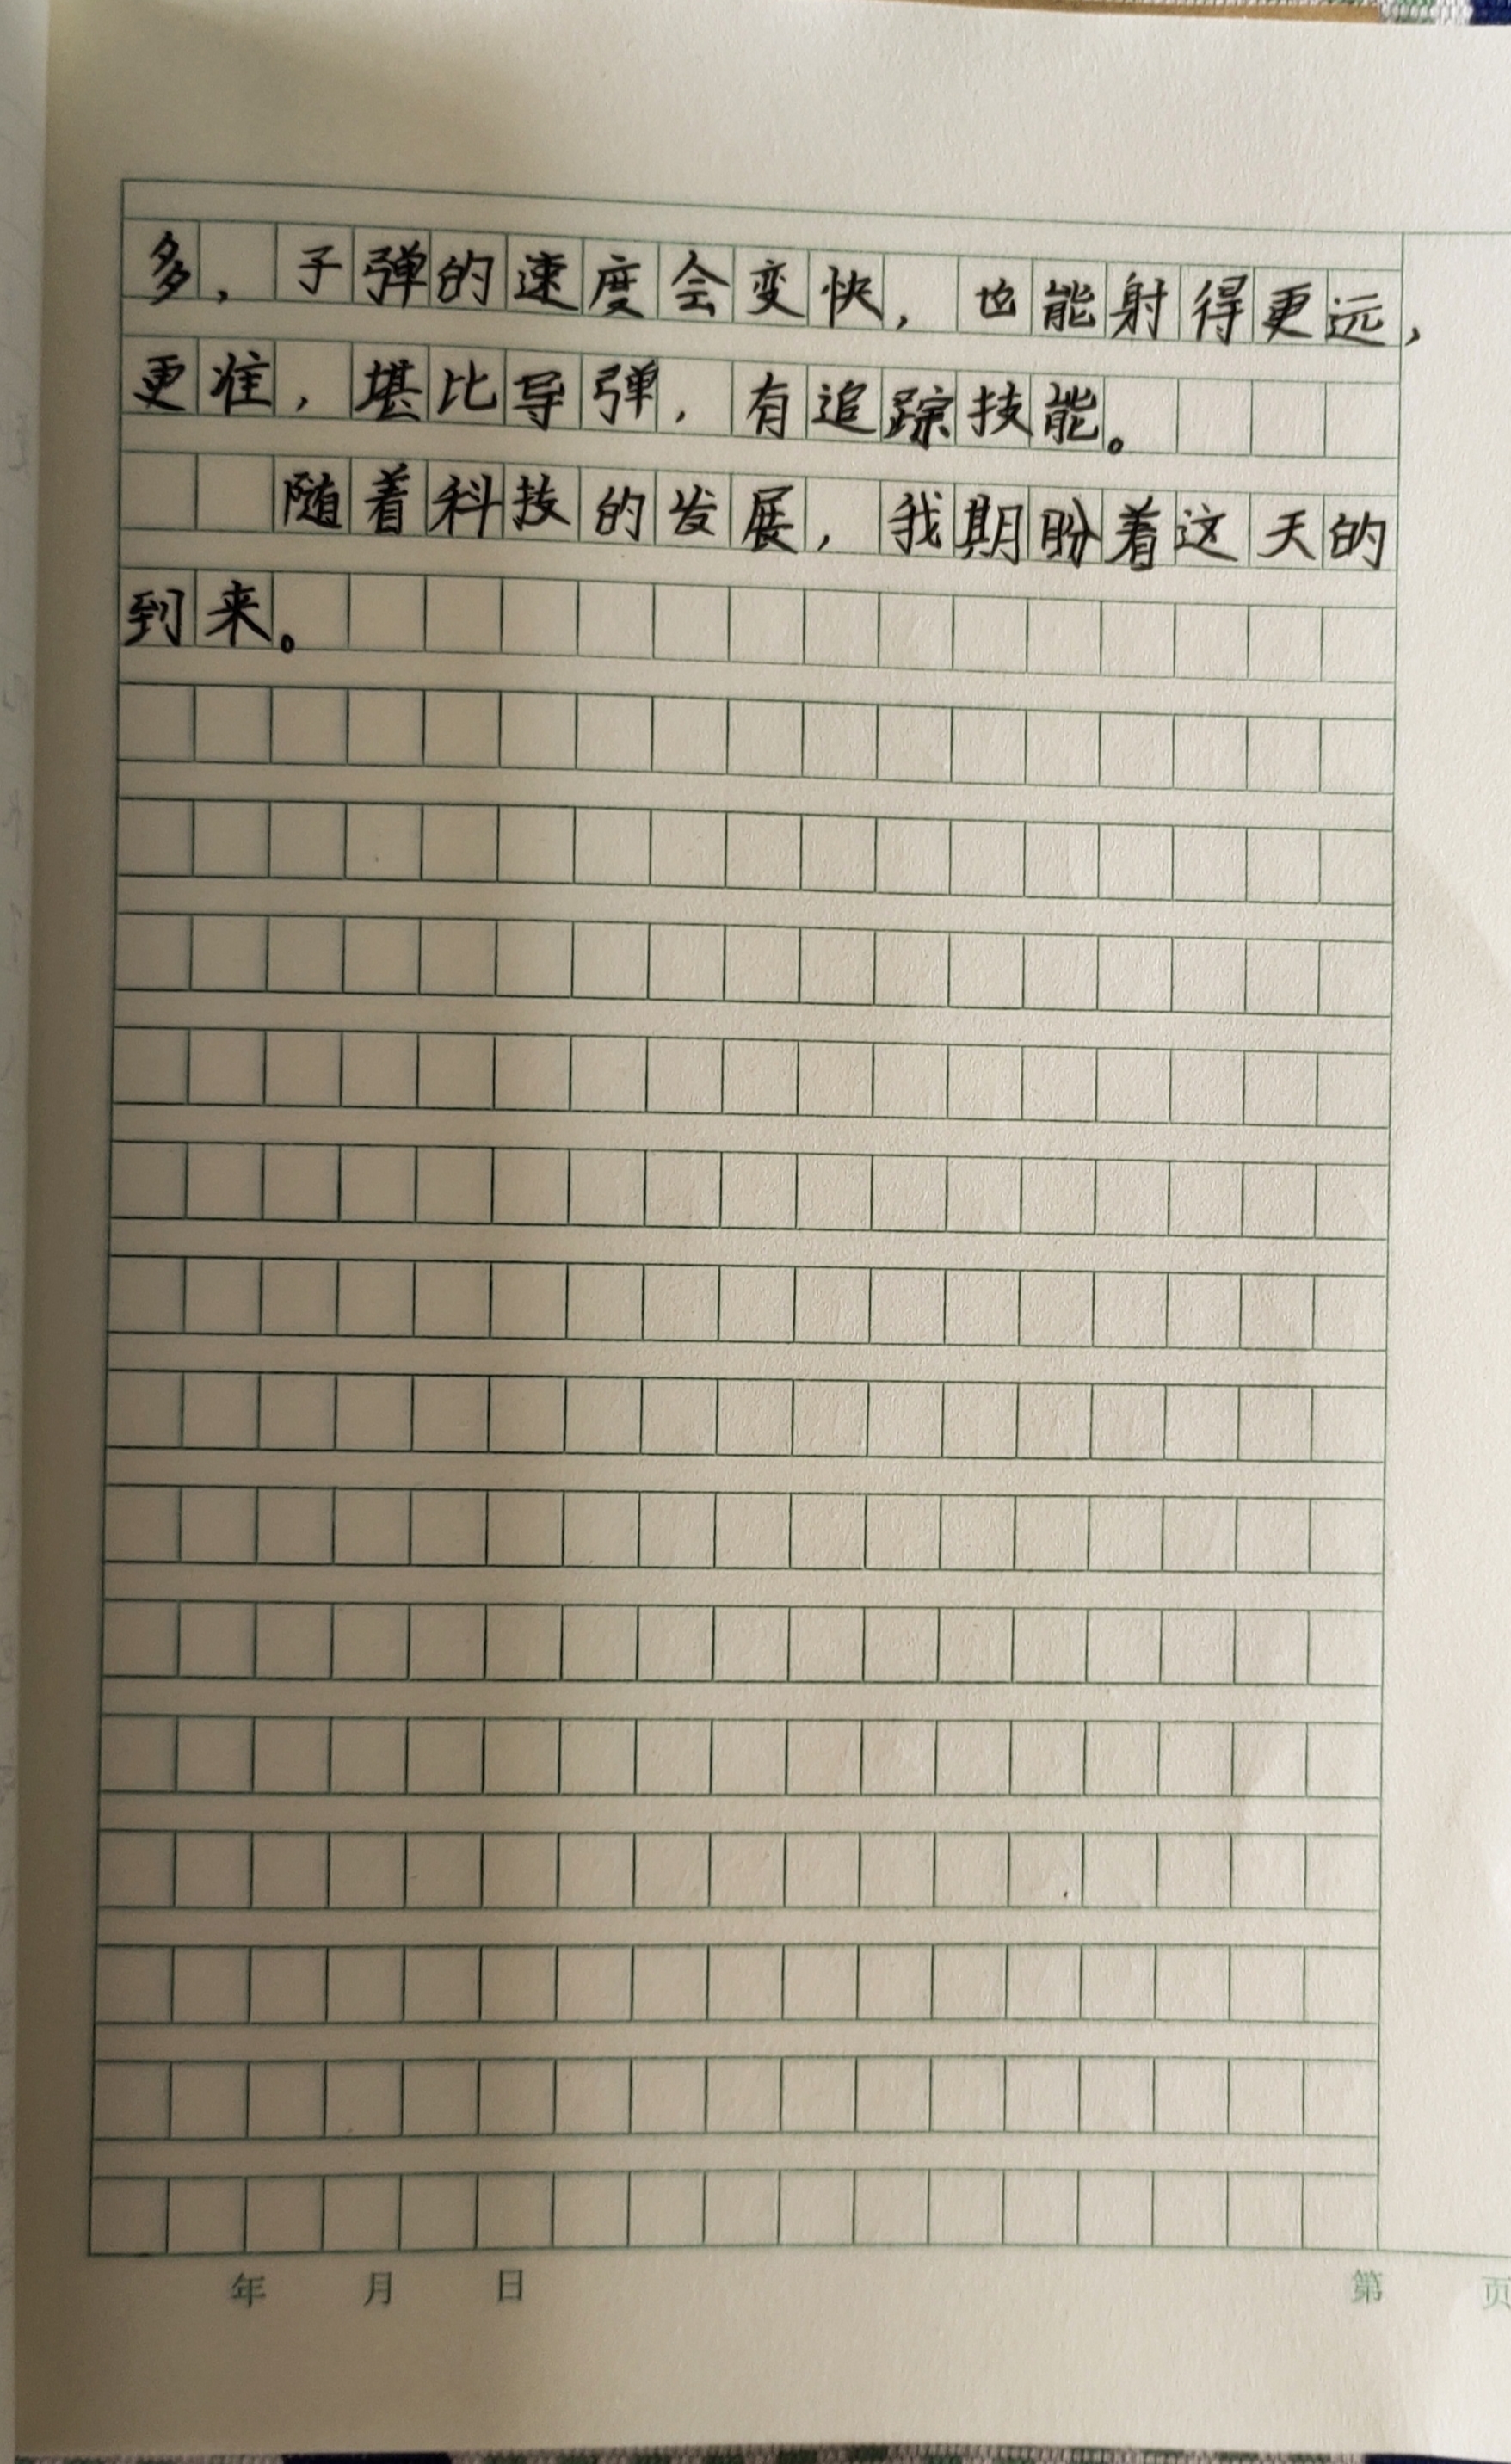 多，子弹的速度会变快，也能射得更远，
更准，堪比导弹，有追踪技能。
随着科技的发展，我期盼着这天的
到来。
年 月 日 第 页